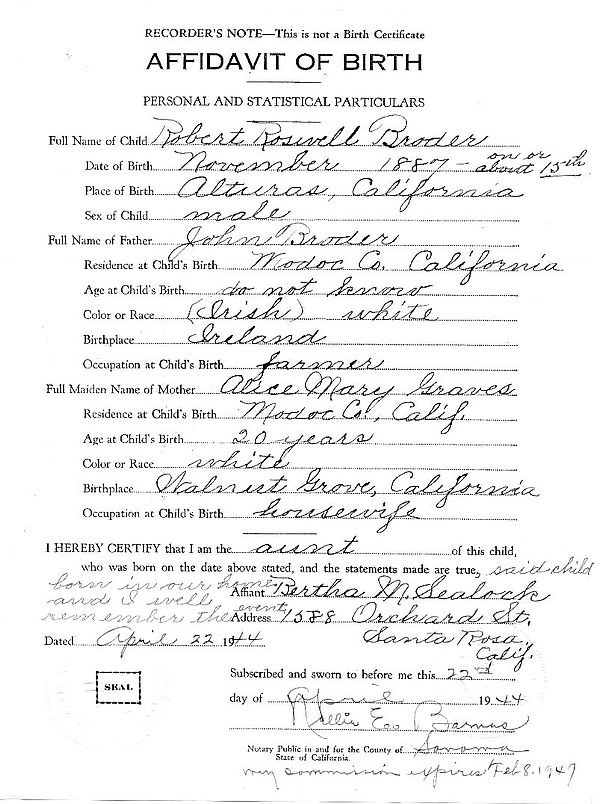 RECORDER'S NOTE—This is not a Birth Certificate
AFFIDAVIT OF BIRTH
PERSONAL AND STATISTICAL PARTICULARS
Full Name of Child Robert Roswell Broder
Date of Birth November 1887 - on or about 15th
Place of Birth Alturas, California
Sex of Child male
Full Name of Father John Broder
Residence at Child's Birth Modoc Co. California
Age at Child's Birth do not know
Color or Race (Irish) white
Birthplace Ireland
Occupation at Child's Birth farmer
Full Maiden Name of Mother Alice Mary Graves
Residence at Child's Birth Modoc Co., Calif.
Age at Child's Birth 20 years
Color or Race white
Birthplace Walnut Grove, California
Occupation at Child's Birth housewife
I HEREBY CERTIFY that I am the aunt of this child,
who was born on the date above stated, and the statements made are true, said child
born in our home
and I well
remember the event
Affiant Bertha M. Sealock
Address 1588 Orchard St.
Santa Rosa,
Calif.
Dated April 22 1944
Subscribed and sworn to before me this 22nd
day of April 1944
Nellie Barnes
Notary Public in and for the County of Sonoma
State of California.
my commission expires Feb 8. 1947
SEAL